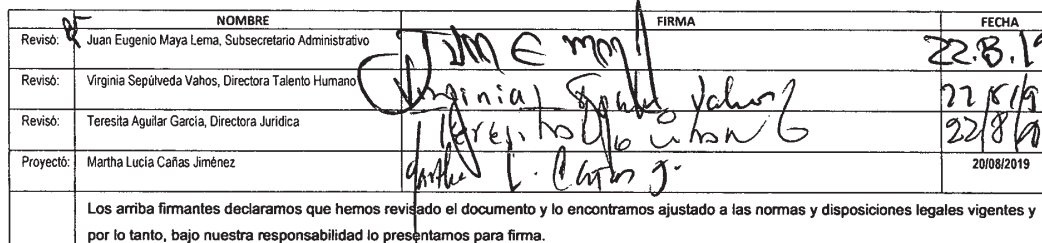 NOMBRE FIRMA FECHA
Revisó: Juan Eugenio Maya Lema, Subsecretario Administrativo Juan E May 22.8.19
Revisó: Virginia Sepúlveda Vahos, Directora Talento Humano Virginia Sepulveda Vahos 22/8/19
Revisó: Teresita Aguilar García, Directora Jurídica Teresita 22/8/19
Proyectó: Martha Lucía Cañas Jiménez Martha L. Cañas J. 20/08/2019
Los arriba firmantes declaramos que hemos revisado el documento y lo encontramos ajustado a las normas y disposiciones legales vigentes y
por lo tanto, bajo nuestra responsabilidad lo presentamos para firma.